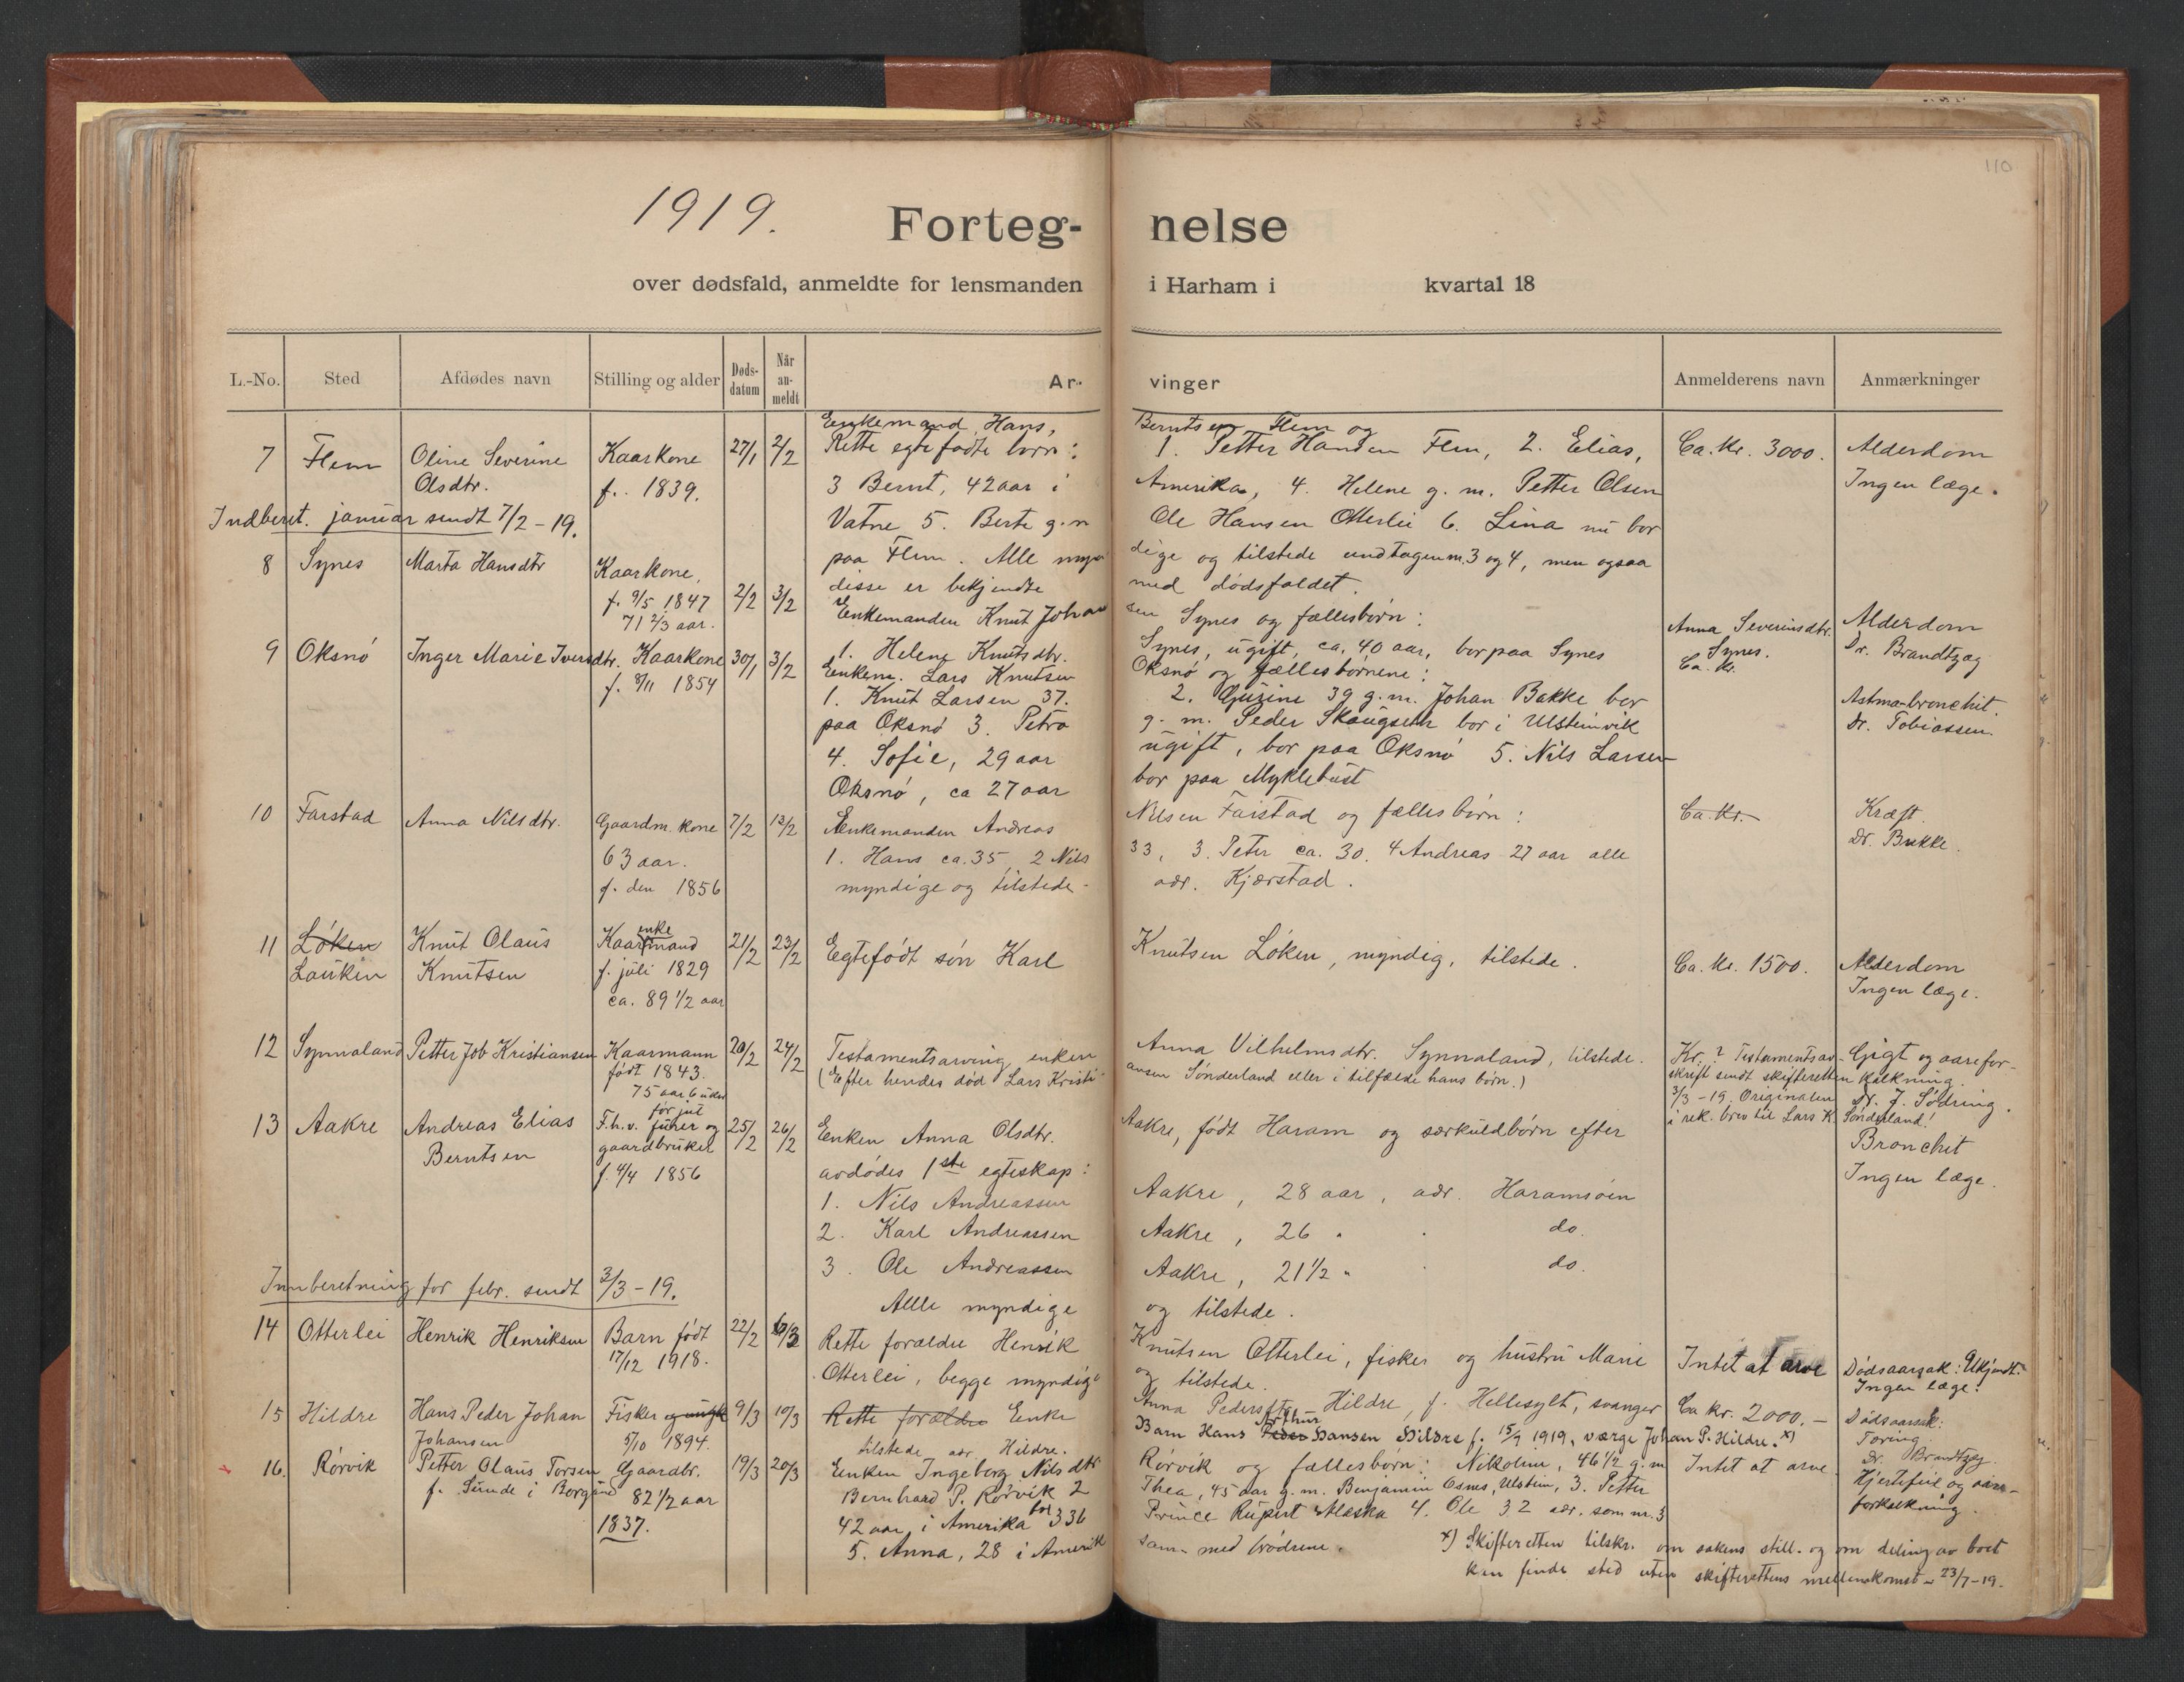 110
1919.
Forteg- nelse
over dødsfald, anmeldte for lensmanden i Harham i kvartal 18
L.-No. Sted Afdødes navn Stilling og alder Døds-datum Når an-meldt Ar- vinger Anmelderens navn Anmærkninger
Enkemand Hans, Berntsen Flem og
7 Flem Oline Severine Kaarkone 27/1 2/2 Rette egtefødte børn: 1. Petter Hansen Flem, 2. Elias, Ca. kr. 3000. Alderdom
Olsdtr. f. 1839. 3 Bernt, 42 aar i Amerika, 4. Helene g. m. Petter Olsen Ingen læge.
Indberet. januar sendt 7/2 - 19. Vatne 5. Berte g. m Ole Hansen Otterlei 6. Lina nu bor
8 Synes Marta Hansdtr Kaarkone, paa Flem. Alle myn dige og tilstede undtagen m. 3 og 4, men ogsaa
f. 9/5 1847 2/2 3/2 disse er bekjendte med dødsfaldet.
71 2/3 aar. Enkemanden Knut Johan sen Synes og fællesbørn: Anna Severinsdtr. Alderdom
9 Oksnø Inger Marie Iversdtr. Kaarkone 30/1 3/2 1. Helene Knutsdtr. Synes, ugift, ca. 40 aar, bor paa Synes Synes. Dr. Brandtzæg
f. 8/11 1854 Enkem. Lars Knutsen Oksnø og fællesbørnene: Ca. kr.
1. Knut Larsen 37. 2. Guzine 39 g. m. Johan Bakke bor Astma-bronchit.
paa Oksnø 3. Petra g. m. Peder Skaugseth bor i Ulsteinvik Dr. Tobiassen.
4. Sofie, 29 aar ugift, bor paa Oksnø 5. Nils Larsen
Oksnø, ca 27 aar bor paa Myklebust
10 Farstad Anna Nilsdtr. Gaardm. kone 7/2 13/2 Enkemanden Andreas Nilsen Farstad og fællesbørn: Ca. kr. Kræft.
63 aar. 1. Hans ca. 35 2 Nils 33, 3. Peter ca. 30. 4 Andreas 27 aar alle Dr. Bakke.
f. den 1856 myndige og tilstede - adr. Kjærstad.
enke
11 Løken Knut Olaus Kaarmand 21/2 23/2 Egtefødt søn Karl Knutsen Løken, myndig, tilstede. Ca. kr. 1500. Alderdom
Lauken Knutsen f. juli 1829 Ingen læge.
ca. 89 1/2 aar
12 Synnaland Petter Job Kristiansen Kaarmann 20/2 24/2 Testamentsarving enken Anna Vilhelmsdtr. Synnaland, tilstede. Kr. ? Testamentsav- Gigt og aarefor-
født 1843. (Efter hendes død Lars Kristi ansen Sønderland eller i tilfælde hans børn.) skrift sendt skifteretten kalkning.
75 aar 6 uker 3/3 - 19. Originalen Dr. J. Sødring.
før jul i rek. brev til Lars K. Sønderland!
13 Aakre Andreas Elias F.h.v. fisker og 25/2 26/2 Enken Anna Olsdtr. Aakre, født Haram og særkuldbørn efter Bronchit
Berntsen gaardbruker avdødes 1ste egteskap: Ingen læge.
f. 4/4 1856 1. Nils Andreassen Aakre, 28 aar, adr. Haramsøen
2. Karl Andreassen Aakre, 26 " do.
3. Ole Andreassen Aakre, 21 1/2 " do.
Innberetning for febr. sendt 3/3 - 19. Alle myndige og tilstede.
14 Otterlei Henrik Henriksen Barn født 22/2 6/3 Rette forældre Henrik Knutsen Otterlei, fisker og hustru Marie Intet at arve Dødsaarsak: Ukjendt.
17/12 1918. Otterlei, begge myndige og tilstede. Ingen læge.
15 Hildre Hans Peder Johan Fisker og ungk 9/3 10/3 Rette forældre Enke Anna Pedersdtr. Hildre, f. Hellesylt, svanger Ca kr. 2000.- Dødsaarsak:
Johansen 5/10 1894. tilstede adr Hildre. Barn Hans Peder Arthur Hansen Hildre f. 15/9 1919, værge Johan P. Hildre. x) Tæring.
Dr. Brandtzæg
16. Rørvik Petter Olaus Torsen Gaardbr. 19/3 20/3 Enken Ingeborg Nilsdtr Rørvik og fællesbørn: Nikoline, 46 1/2 g. m Intet at arve Hjertefeil og aare-
f. Sunde i Borgund 82 1/2 aar Bernhard P. Rørvik 2 Thea, 45 aar g. m. Benjamin Osnes, Ulstein, 3. Petter forkalkning.
1837. 42 aar, i Amerika bor 336 Prince Rupert Alaska 4. Ole 32 adr. som nr. 3
5. Anna, 28 i Amerik sam- med brødrene.
x) Skifteretten tilskr. om sakens still. og om deling av boet
kan finde sted uten skifterettens mellemkomst - 23/7 - 19.